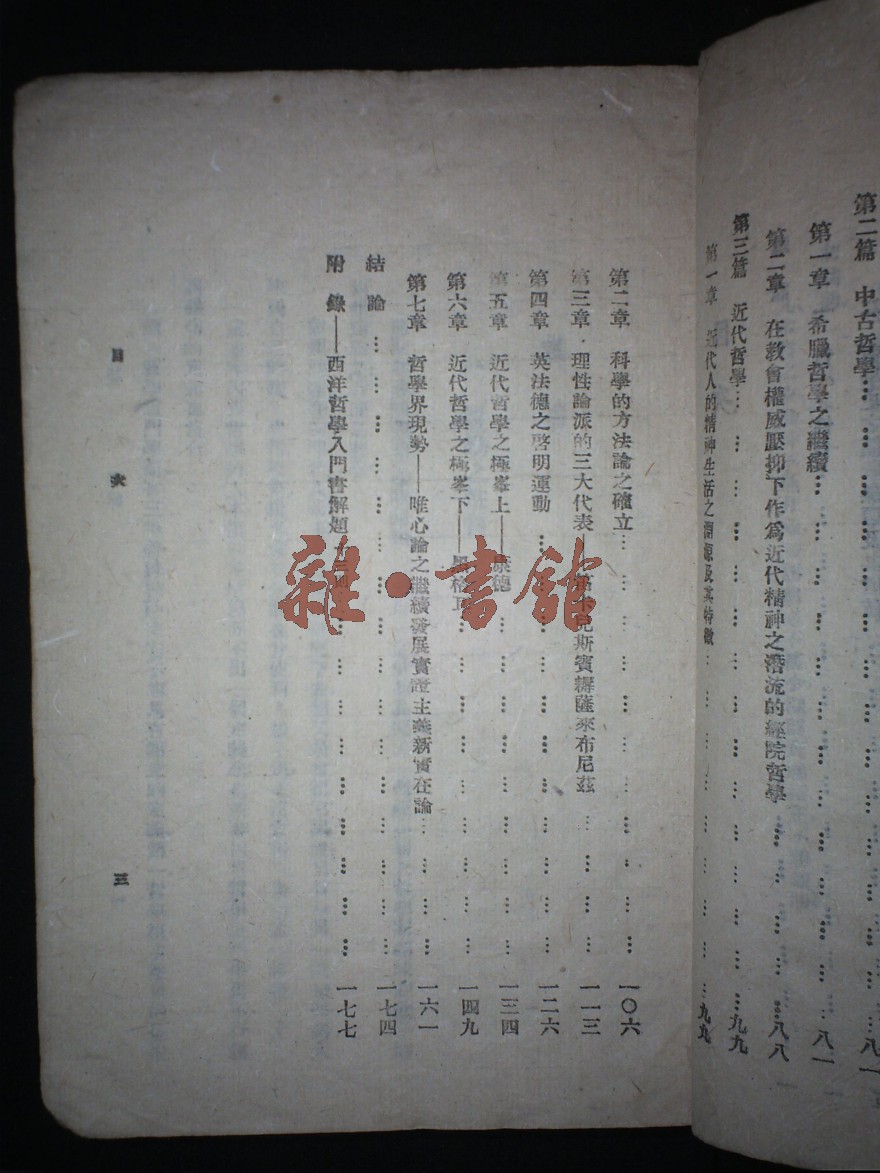 第二篇 中古哲學… … … … … … … … … … … 八一
第一章 希臘哲學之繼續… … … … … … … … … … 八一
第二章 在教會權威壓抑下作為近代精神之潛流的經院哲學… … … … … 八八
第三篇 近代哲學… … … … … … … … … … … 九九
第一章 近代人的精神生活之淵源及其特徵… … … … … … … … 九九
第二章 科學的方法論之確立… … … … … … … … … 一〇六
第三章 理性論派的三大代表——斯賓耨薩來布尼茲… … … … 一一三
第四章 英法德之啓明運動… … … … … … … … … 一二六
第五章 近代哲學之極峯上——康德… … … … … … … 一三四
第六章 近代哲學之極峯下——… … … … … … … 一四九
第七章 哲學界現勢——唯心論之繼續發展實證主義新實在論… … … … 一六一
結論… … … … … … … … … … … … … 一七四
附 錄——西洋哲學入門書解題… … … … … … … … 一七七
目 次
三
雜·書館